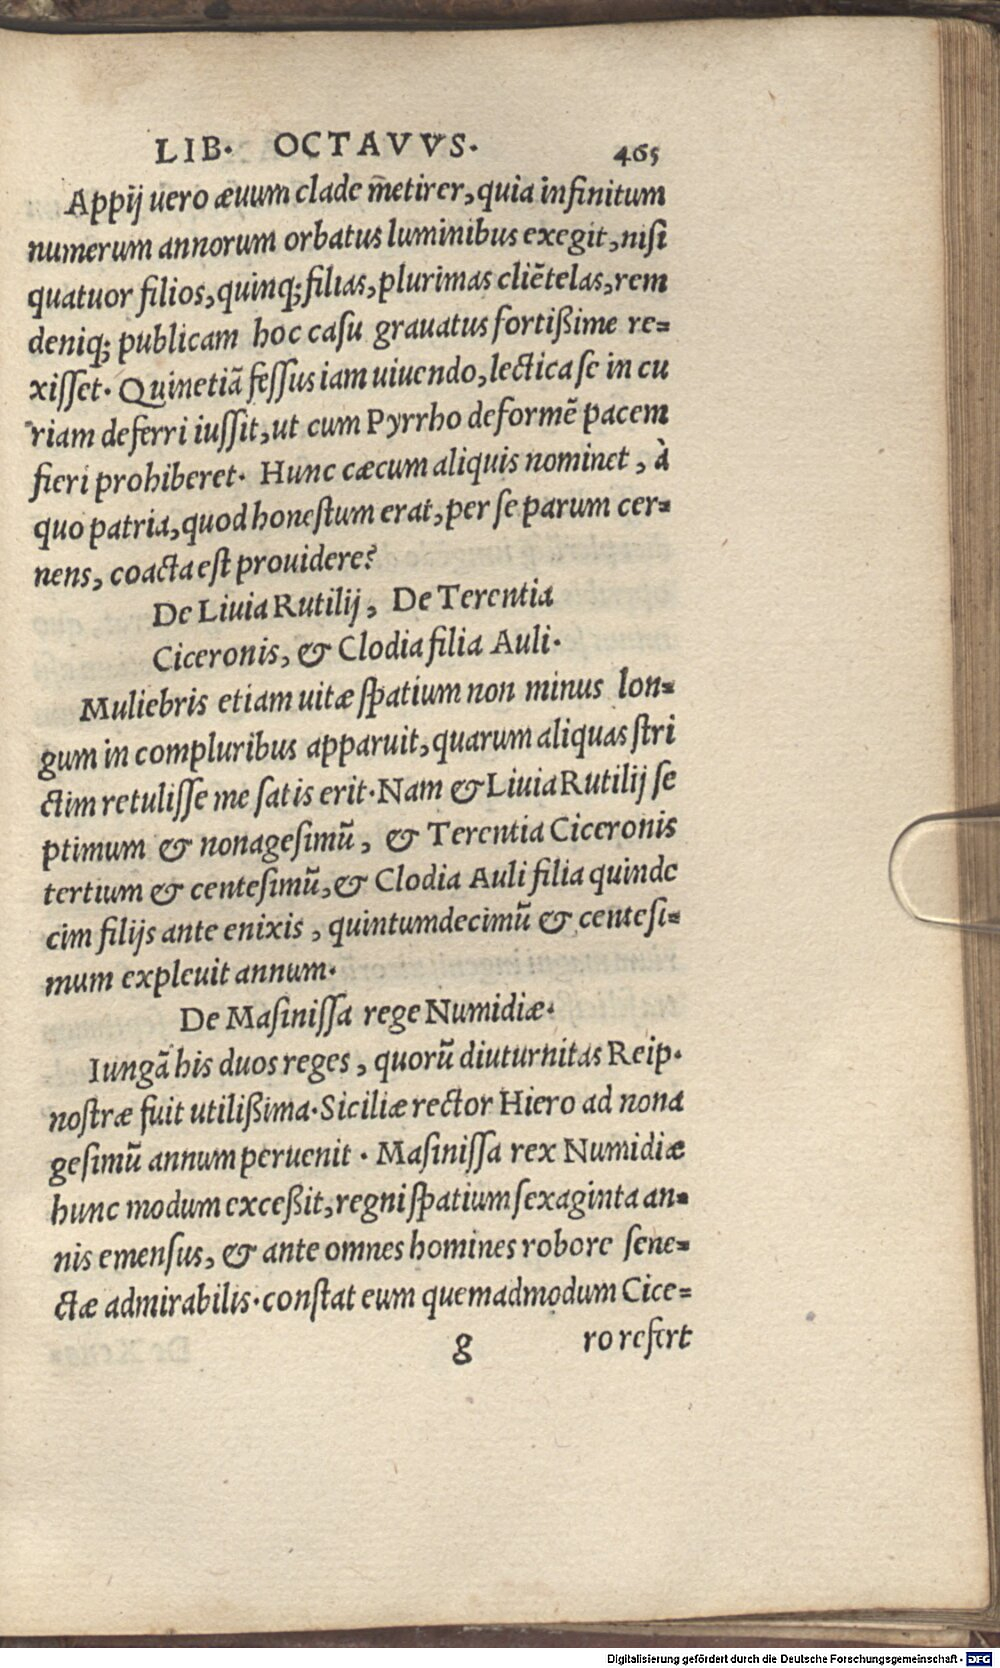 LIB. OCTAVVS. 465
Appij uero æuum clade m̃etirer, quia infinitum
numerum annorum orbatus luminibus exegit, nisi
quatuor filios, quinq; filias, plurimas cliẽtelas, rem
deniq; publicam hoc casu grauatus fortißime re=
xisset. Quinetiã fessus iam uiuendo, lectica se in cu
riam deferri iussit, ut cum Pyrrho deformẽ pacem
fieri prohiberet. Hunc cæcum aliquis nominet, à
quo patria, quod honestum erat, per se parum cer=
nens, coacta est prouidere?
De Liuia Rutilij, De Terentia
Ciceronis, & Clodia filia Auli.
Muliebris etiam uitæ spatium non minus lon=
gum in compluribus apparuit, quarum aliquas stri
ctim retulisse me satis erit. Nam & Liuia Rutilij se
ptimum & nonagesimũ, & Terentia Ciceronis
tertium & centesimũ, & Clodia Auli filia quinde
cim filijs ante enixis, quintumdecimũ & centesi=
mum expleuit annum.
De Masinissa rege Numidiæ.
Iungã his duos reges, quorũ diuturnitas Reip.
nostræ fuit utilißima. Siciliæ rector Hiero ad nona
gesimũ annum peruenit. Masinissa rex Numidiæ
hunc modum exceßit, regni spatium sexaginta an=
nis emensus, & ante omnes homines robore sene=
ctæ admirabilis. constat eum quemadmodum Cice=
g ro refert
Digitalisierung gefördert durch die Deutsche Forschungsgemeinschaft - DFG